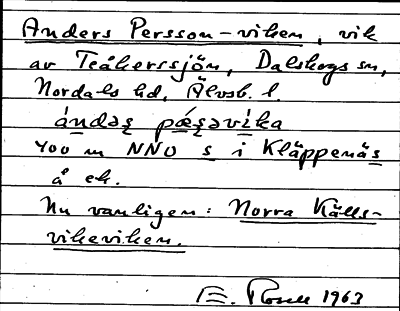 Anders Persson-viken, vik
av Teåkerssjön, Dalskogs sn,
Nordals hd, Älvsb. l.
ándaʂ pǽʂavìka
400 m NNO s i Kläppenäs
å ek.
Nu vanligen: Norra Källs-
vikeviken.
E. Rosell 1963